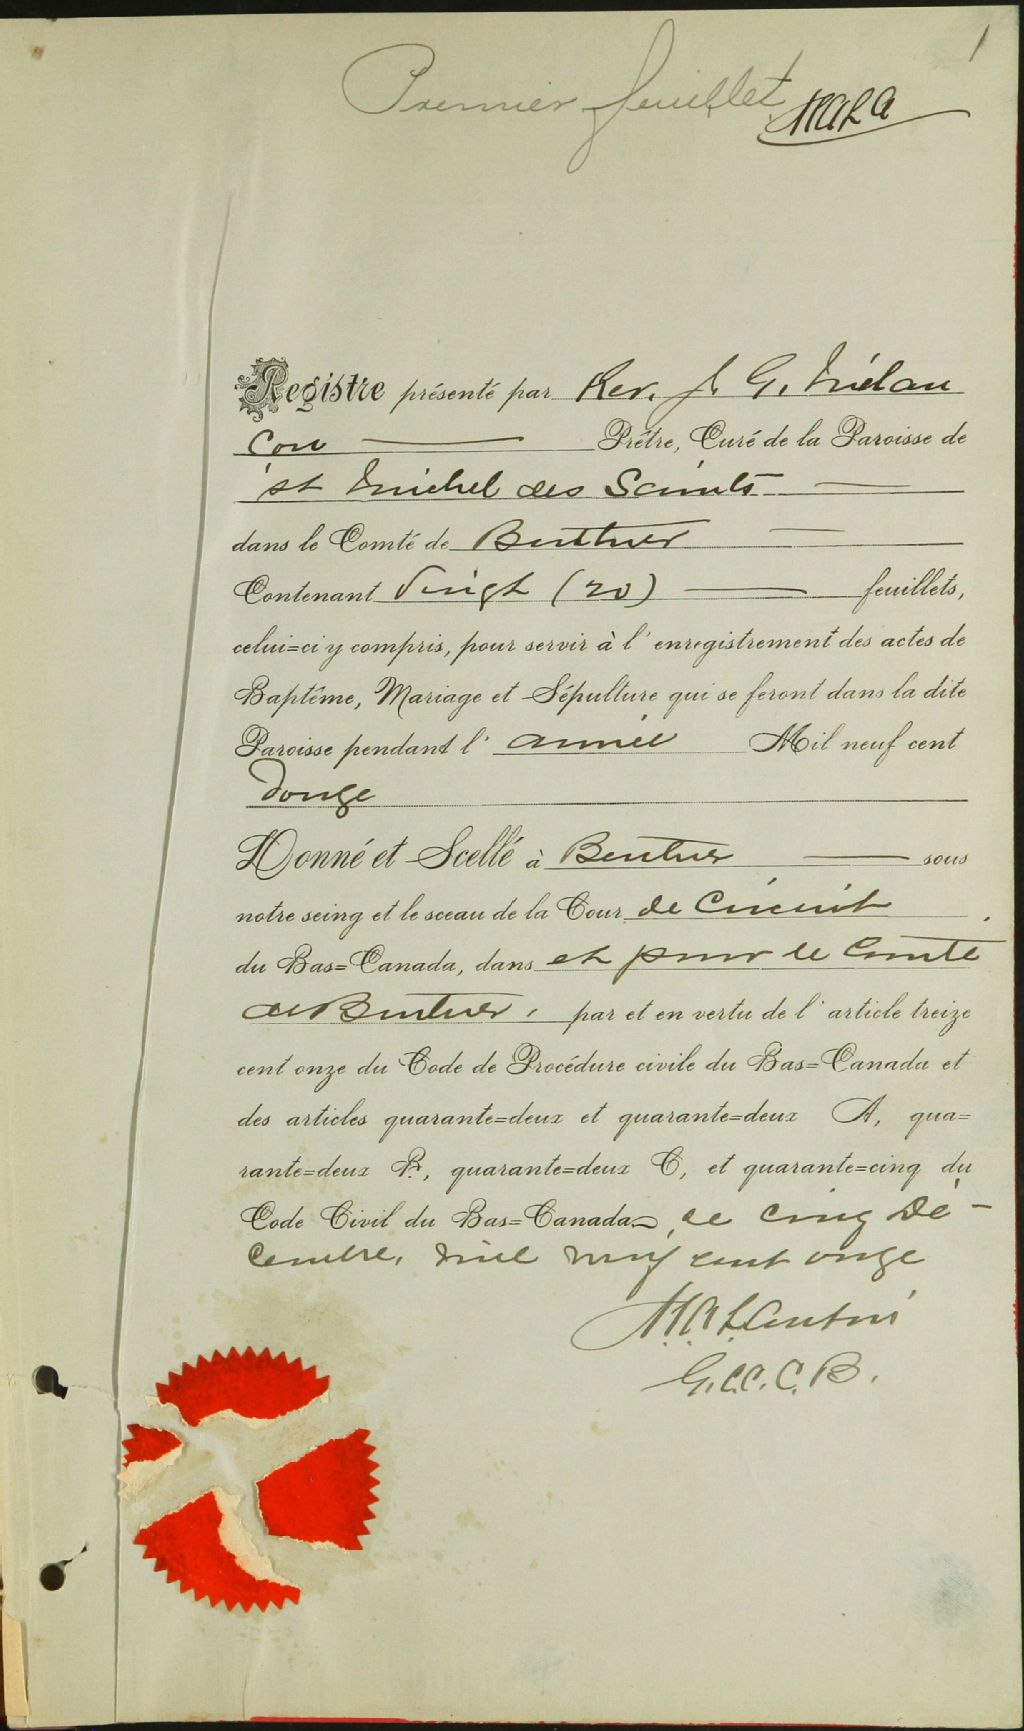 1
Premier feuillet
Registre présenté par Rev. J. G. Mélan
con Prêtre, Curé de la Paroisse de
st Michel des Saints
dans le Comté de Berthier
Contenant Vingt (20) feuillets,
celui=ci y compris, pour servir à l'enregistrement des actes de
Baptême, Mariage et Sépulture qui se feront dans la dite
Paroisse pendant l'année Mil neuf cent
douze
Donné et Scellé à Berthier sous
notre seing et le sceau de la Cour de Circuit
du Bas=Canada, dans et pour le Comté
de Berthier, par et en vertu de l'article treize
cent onze du Code de Procédure civile du Bas=Canada et
des articles quarante=deux et quarante=deux A, qua=
rante=deux B, quarante=deux C, et quarante=cinq du
Code Civil du Bas=Canada, ce cinq Dé-
cembre, mil neuf cent onze
G.C.C.C.B.